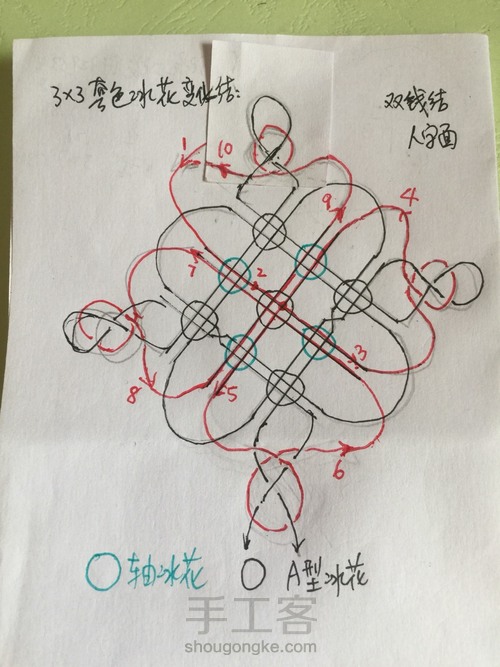 3×3套色冰花变化结:
双钱结
人字面
1
10
9
4
7
2
3
8
5
6
轴冰花
A型冰花
手工客
shougongke.com